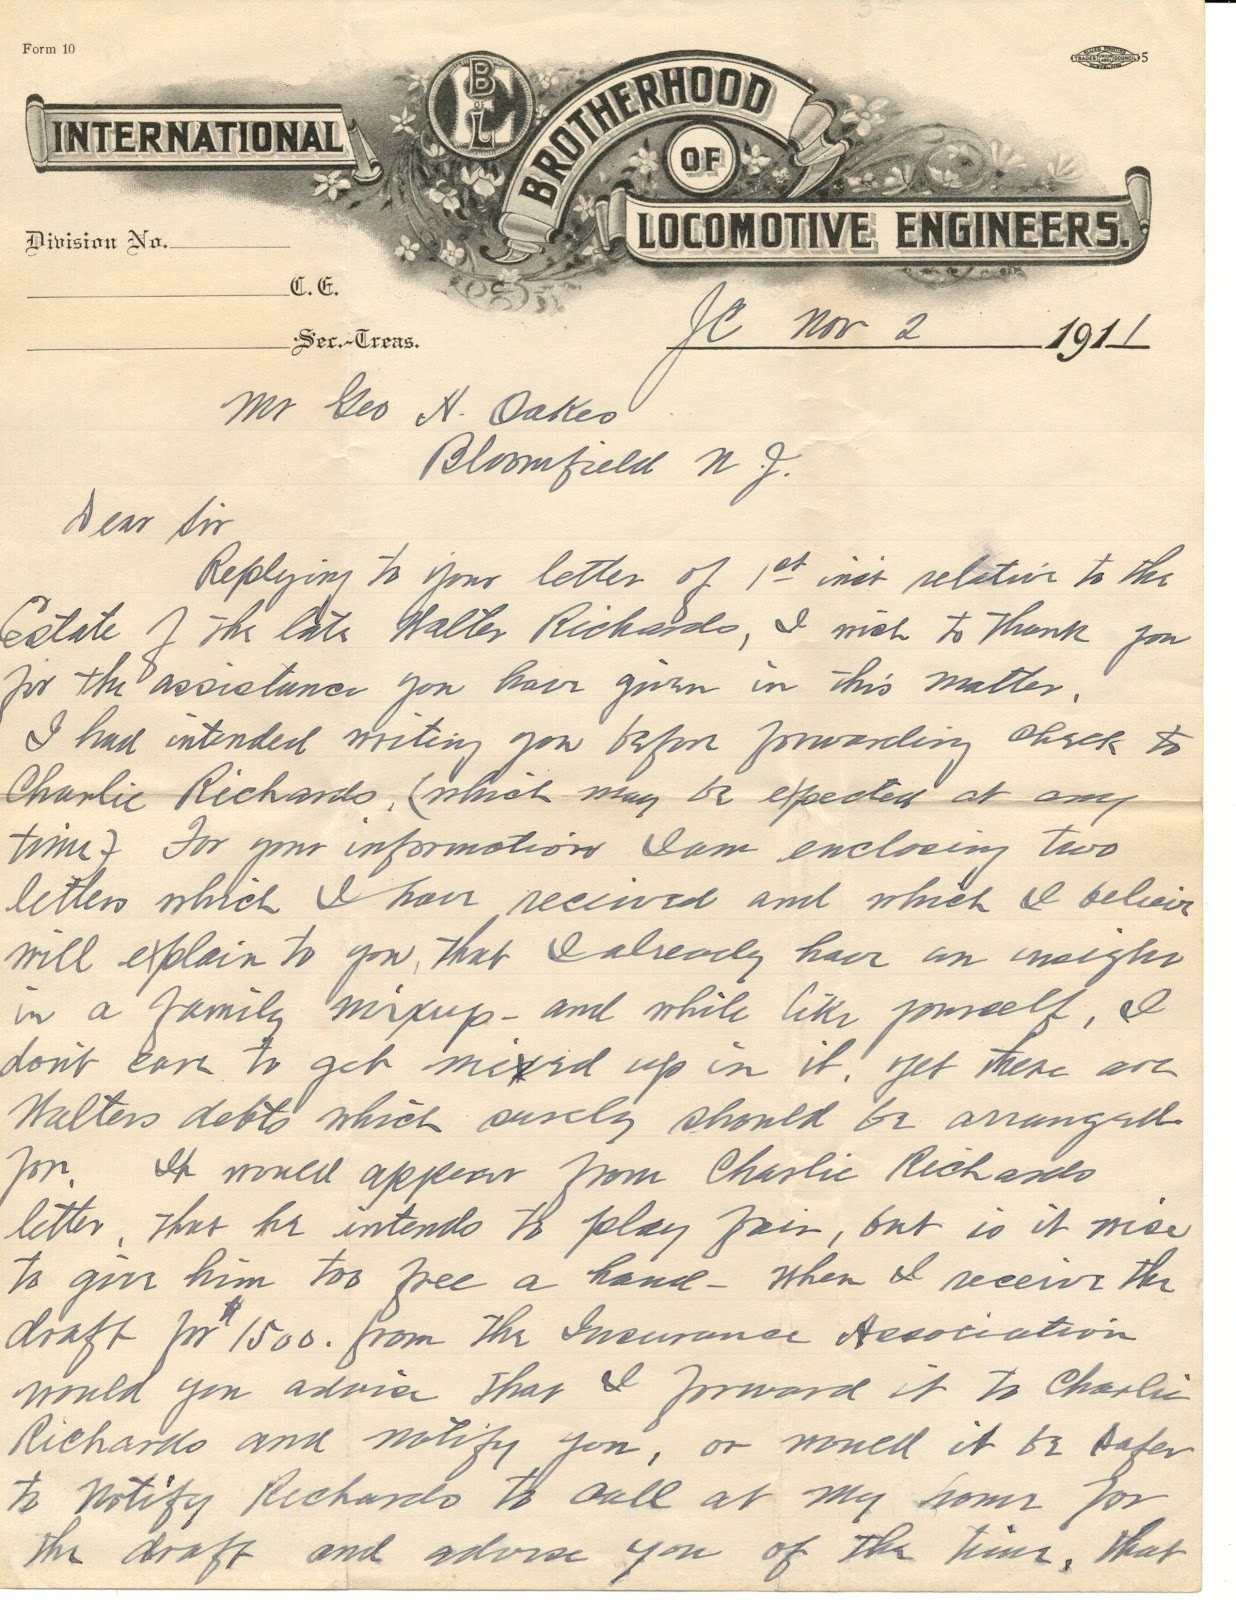 Form 10
5
INTERNATIONAL
B of L E
BROTHERHOOD
OF
LOCOMOTIVE ENGINEERS.
Division No.
C. E.
Sec.-Treas.
JC Nov 2 1911
Mr Geo H. Oakes
Bloomfield N. J.
Dear Sir
Replying to your letter of 1st inst relative to the
Estate of the late Walter Richards, I wish to thank you
for the assistance you have given in this matter.
I had intended writing you before forwarding check to
Charlie Richards, (which may be expected at any
time) For your information I am enclosing two
letters which I have received and which I believe
will explain to you, that I already have an insight
in a family mixup - and while like yourself, I
don't care to get mixed up in it, yet there are
Walters debts which surely should be arranged
for. It would appear from Charlie Richards
letter, that he intends to play fair, but is it wise
to give him too free a hand - When I receive the
draft for $1500. from the Insurance Association
would you advise that I forward it to Charlie
Richards and notify you, or would it be safer
to notify Richards to call at my home for
the draft and advise you of the time, that